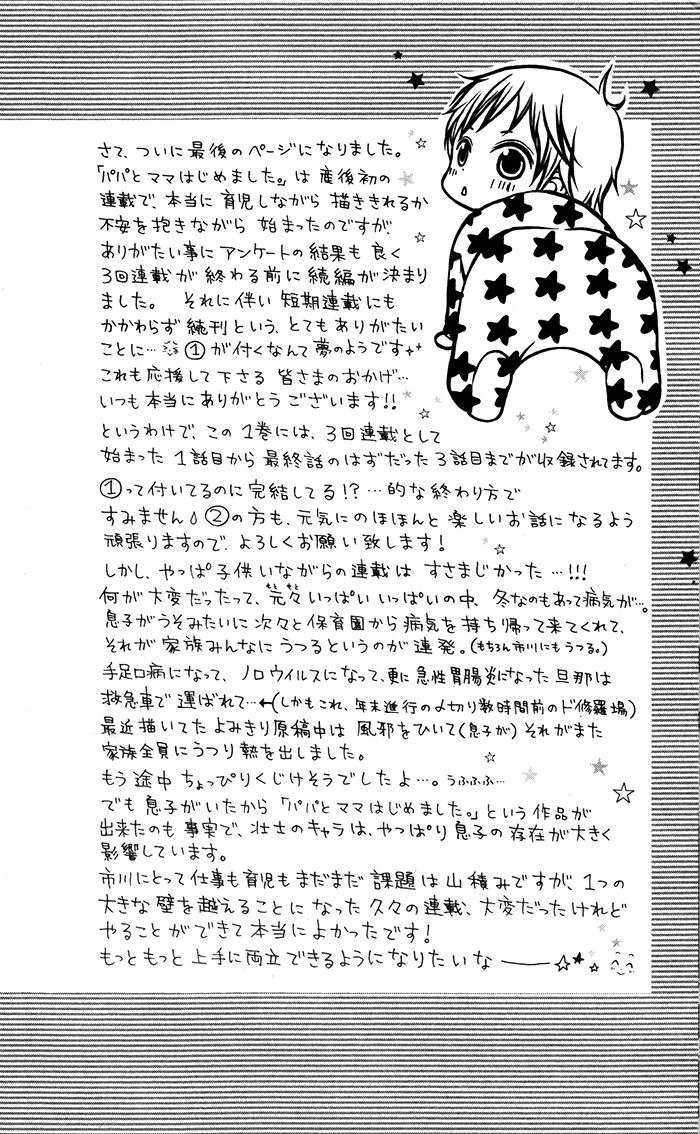 さて、ついに最後のページになりました。
「パパとママはじめました。」は産後初の
連載で、本当に育児しながら描ききれるか
不安を抱きながら始まったのですが、
ありがたい事にアンケートの結果も良く
3回連載が終わる前に続編が決まり
ました。 それに伴い短期連載にも
かかわらず続刊という、とてもありがたい
ことに… ①が付くなんて夢のようです
これも応援して下さる皆さまのおかげ…
いつも本当にありがとうございます!!
というわけで、この1巻には、3回連載として
始まった1話目から最終話のはずだった3話目までが収録されてます。
①って付いてるのに完結してる!?…的な終わり方で
すみません ②の方も、元気にのほほんと楽しいお話になるよう
頑張りますので、よろしくお願い致します!
しかし、やっぱ子供いながらの連載はすさまじかった…!!!
何が大変だったって、元々いっぱいいっぱいの中、冬なのもあって病気が…。
もともと
息子がうそみたいに次々と保育園から病気を持ち帰って来てくれて、
それが家族みんなにうつるというのが連発。(もちろん市川にもうつる。)
手足口病になって、ノロウイルスになって、更に急性胃腸炎になった旦那は
救急車で運ばれて…←(しかもこれ、年末進行の〆切り数時間前のド修羅場)
最近描いてたよみきり原稿中は風邪をひいて(息子が)それがまた
家族全員にうつり熱を出しました。
もう途中ちょっぴりくじけそうでしたよ…。うふふふ…
でも息子がいたから「パパとママはじめました。」という作品が
出来たのも事実で、壮士のキャラは、やっぱり息子の存在が大きく
影響しています。
市川にとって仕事も育児もまだまだ課題は山積みですが、1つの
大きな壁を越えることになった久々の連載、大変だったけれど
やることができて本当によかったです!
もっともっと上手に両立できるようになりたいな――☆★